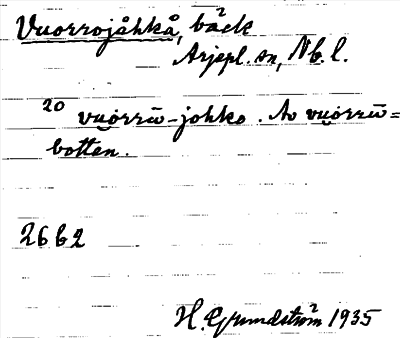 Vuorrojåhkå, bäck
Arjepl. sn, Nb. l.
20 vuorrū-johko. Av vuorrū=
botten.
26 b 2
H. Grundström 1935